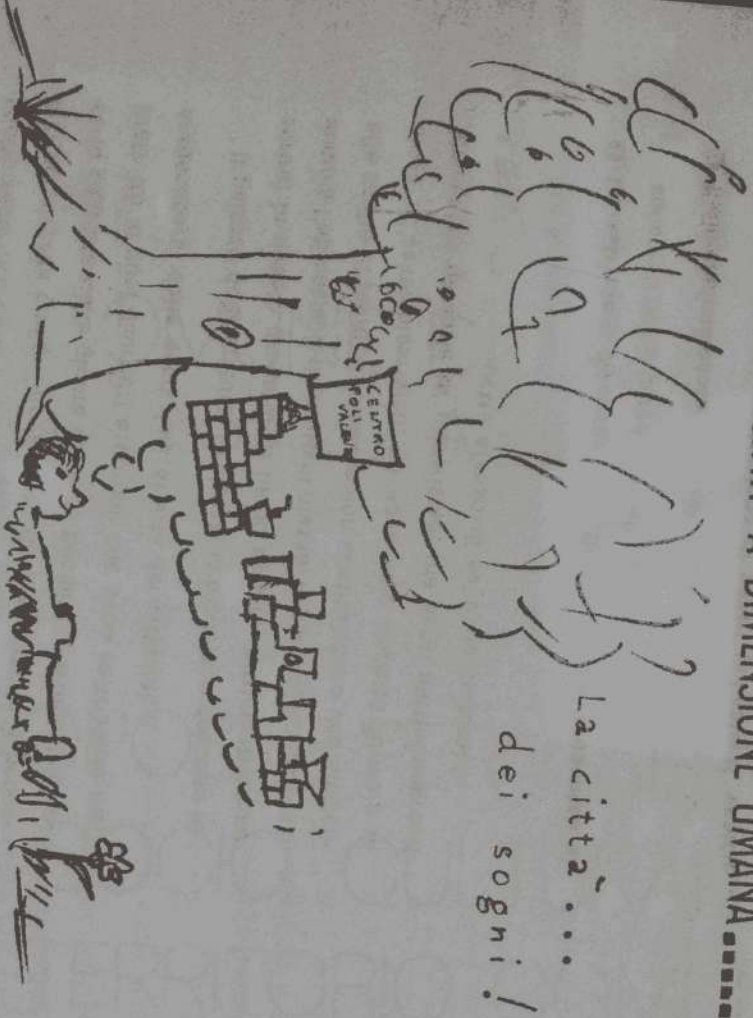 A DIMENSIONE UMANA......
La città...
dei sogni!
CENTRO
POLI
VALENTE